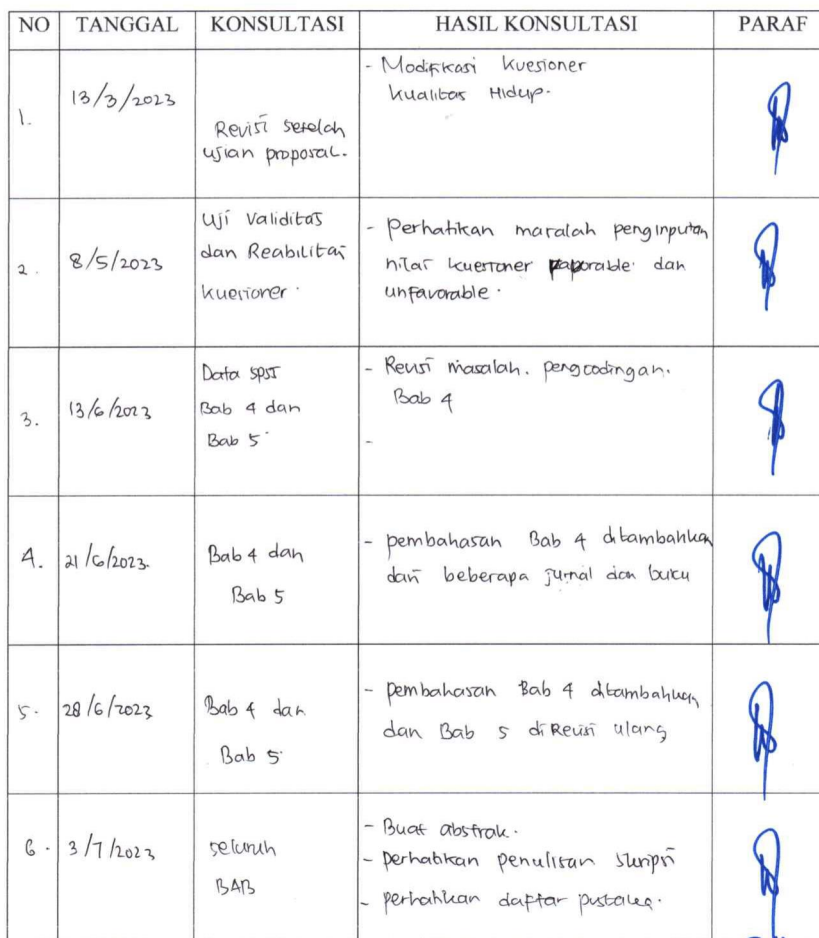 NO TANGGAL KONSULTASI HASIL KONSULTASI PARAF
1. 13/3/2023
Revisi setelah
ujian proposal.
- Modifikasi Kuesioner
Kualitas Hidup.
2. 8/5/2023
Uji Validitas
dan Reabilitas
Kuesioner.
- Perhatikan masalah penginputan
nilai kuesioner paporable dan
unfavorable.
3. 13/6/2023
Data SPSS
Bab 4 dan
Bab 5
- Revisi masalah. pengcodingan.
Bab 4
-
4. 21/6/2023.
Bab 4 dan
Bab 5
- pembahasan Bab 4 ditambahkan
dari beberapa jurnal dan buku
5. 28/6/2023
Bab 4 dan
Bab 5
- Pembahasan Bab 4 ditambahkan
dan Bab 5 di Revisi ulang
6. 3/7/2023
seluruh
BAB
- Buat abstrak.
- perhatikan penulisan skripsi
- perhatikan daftar pustaka.